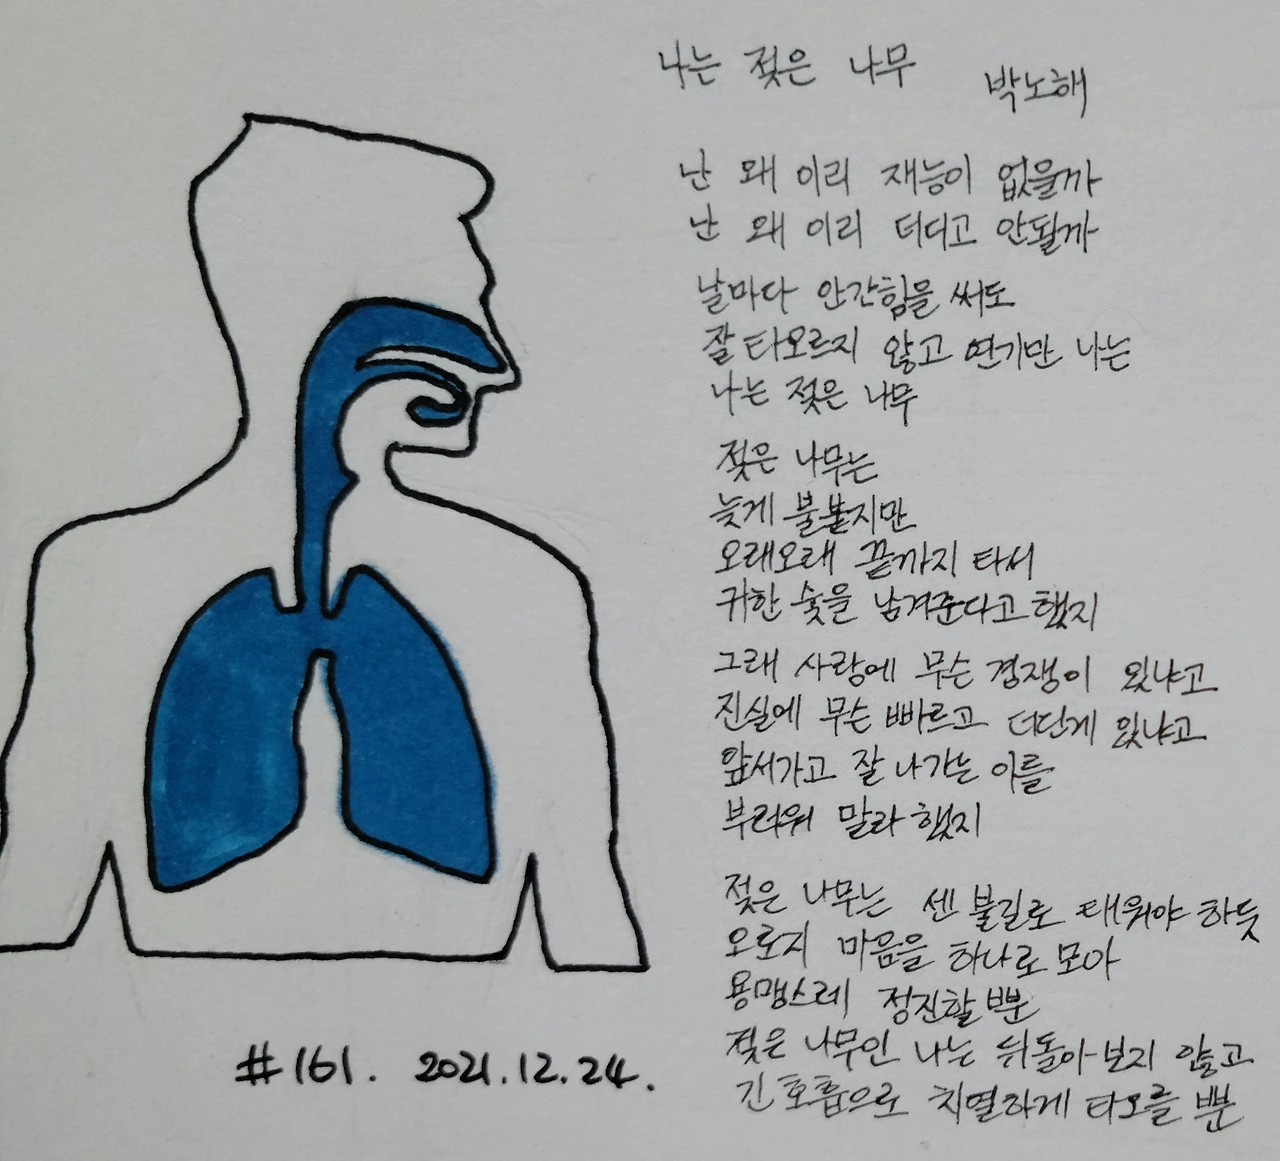 나는 젖은 나무 박노해
난 왜 이리 재능이 없을까
난 왜 이리 더디고 안될까
날마다 안간힘을 써도
잘 타오르지 않고 연기만 나는
나는 젖은 나무
젖은 나무는
늦게 불붙지만
오래오래 끝까지 타서
귀한 숯을 남겨준다고 했지
그래 사랑에 무슨 경쟁이 있냐고
진실에 무슨 빠르고 더딘게 있냐고
앞서가고 잘 나가는 이를
부러워 말라 했지
젖은 나무는 센 불길로 태워야 하듯
오로지 마음을 하나로 모아
용맹스레 정진할 뿐
젖은 나무인 나는 뒤돌아 보지 않고
긴 호흡으로 치열하게 타오를 뿐
#161. 2021.12.24.